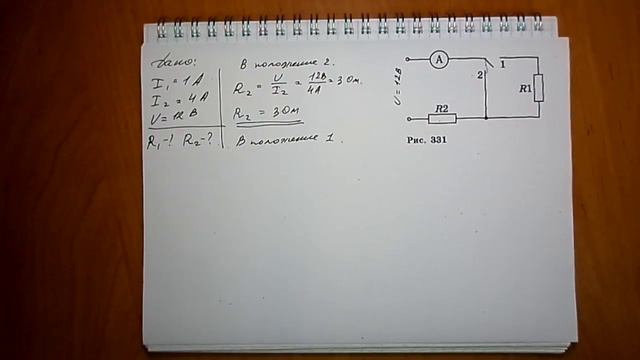 Дано:
I₁ = 1 А
I₂ = 4 А
U = 12 В
R₁-? R₂-?
В положение 2.
R₂ = U/I₂ = 12В/4А = 3 Ом.
R₂ = 3 Ом
В положение 1.
U = 12 В
A
1
2
R1
R2
Рис. 331